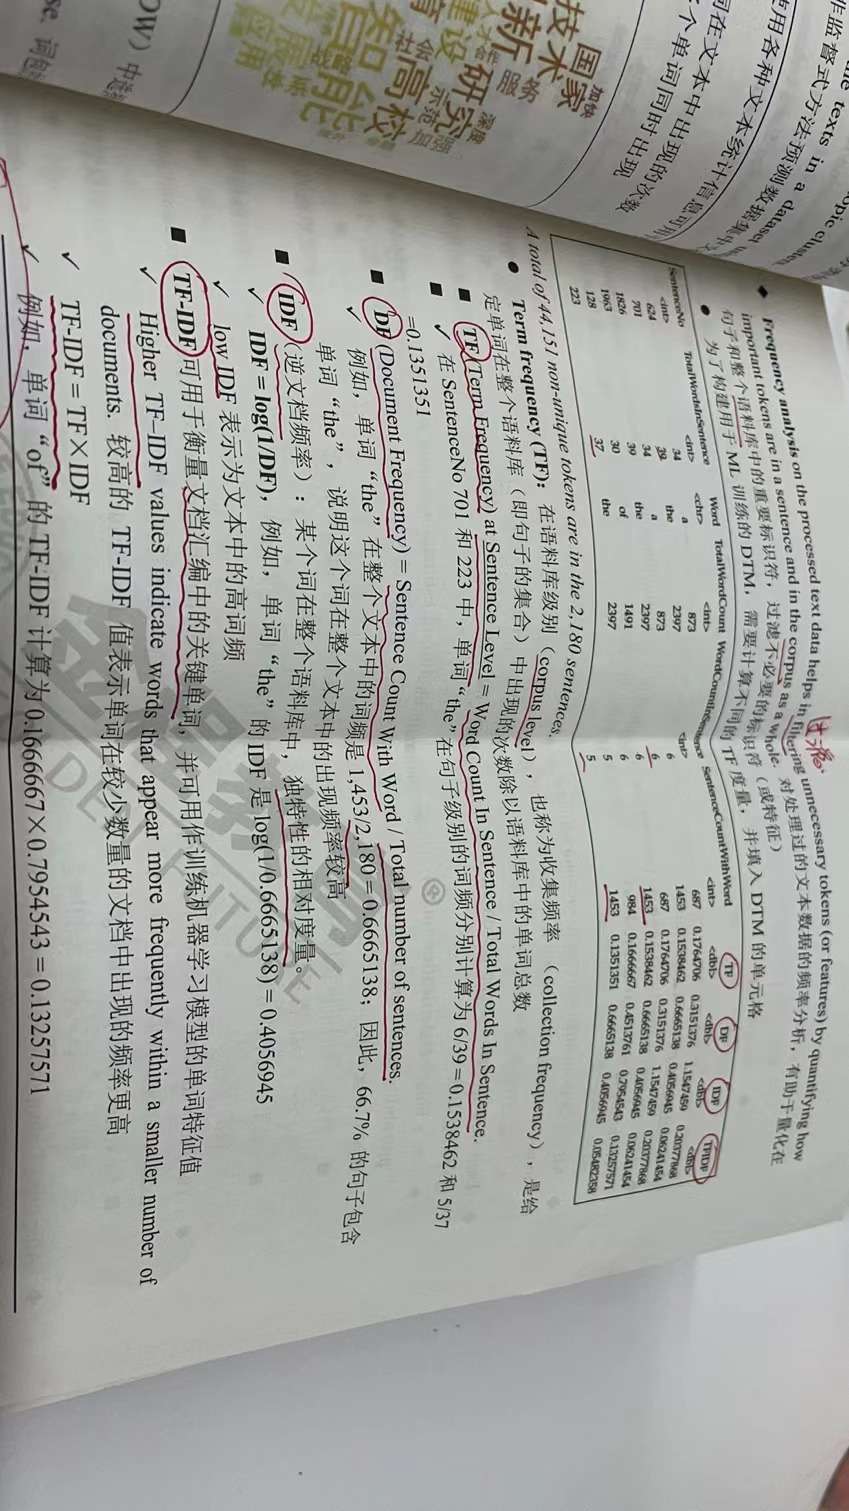 ◆ Frequency analysis on the processed text data helps in filtering unnecessary tokens (or features) by quantifying how
important tokens are in a sentence and in the corpus as a whole. 对处理过的文本数据的频率分析，有助于量化在
句子和整个语料库中的重要标识符，过滤不必要的标识符（或特征）
过滤
● 为了构建用于 ML 训练的 DTM，需要计算不同的 TF 度量，并填入 DTM 的单元格
SentenceNo TotalWordsInSentence Word TotalWordCount WordCountInSentence SentenceCountWithWord TF DF IDF TFIDF
<int> <int> <chr> <int> <int> <int> <dbl> <dbl> <dbl> <dbl>
624 34 a 873 6 687 0.1764706 0.3151376 1.1547459 0.20377868
701 39 the 2397 6 1453 0.1538462 0.6665138 0.4056945 0.06241454
1826 34 a 873 6 687 0.1764706 0.3151376 1.1547459 0.20377868
1963 39 the 2397 6 1453 0.1538462 0.6665138 0.4056945 0.06241454
128 30 of 1491 5 984 0.1666667 0.4513761 0.7954543 0.13257571
223 37 the 2397 5 1453 0.1351351 0.6665138 0.4056945 0.05482358
A total of 44,151 non-unique tokens are in the 2,180 sentences.
● Term frequency (TF)：在语料库级别（corpus level），也称为收集频率（collection frequency），是给
定单词在整个语料库（即句子的集合）中出现的次数除以语料库中的单词总数
■ TF (Term Frequency) at Sentence Level = Word Count In Sentence / Total Words In Sentence.
■ ✓ 在 SentenceNo 701 和 223 中，单词“the”在句子级别的词频分别计算为 6/39＝0.1538462 和 5/37
＝0.1351351
■ DF (Document Frequency) = Sentence Count With Word / Total number of sentences.
✓ 例如，单词“the”在整个文本中的词频是 1,453/2,180＝0.6665138；因此，66.7% 的句子包含
单词“the”，说明这个词在整个文本中的出现频率较高
■ IDF（逆文档频率）：某个词在整个语料库中，独特性的相对度量。
✓ IDF＝log(1/DF)，例如，单词“the”的 IDF 是 log(1/0.6665138)＝0.4056945
✓ low IDF 表示为文本中的高词频
■ TF-IDF 可用于衡量文档汇编中的关键单词，并可用作训练机器学习模型的单词特征值
✓ Higher TF–IDF values indicate words that appear more frequently within a smaller number of
documents. 较高的 TF-IDF 值表示单词在较少数量的文档中出现的频率更高
✓ TF-IDF＝TF×IDF
✓ 例如，单词“of”的 TF-IDF 计算为 0.1666667×0.7954543＝0.13257571
texts in a dataset
作监督式方法预测数据集中文
使用各种文本统计信息可用
词在文本中出现的次数
个单词同时出现
国家
加快
技术
服务
深度
创新
研究
示范
加强
建设
社会
合作
高校
智能
战略
发展
应用
体系
OW）中
金程教育
GOLDEN FUTURE
®